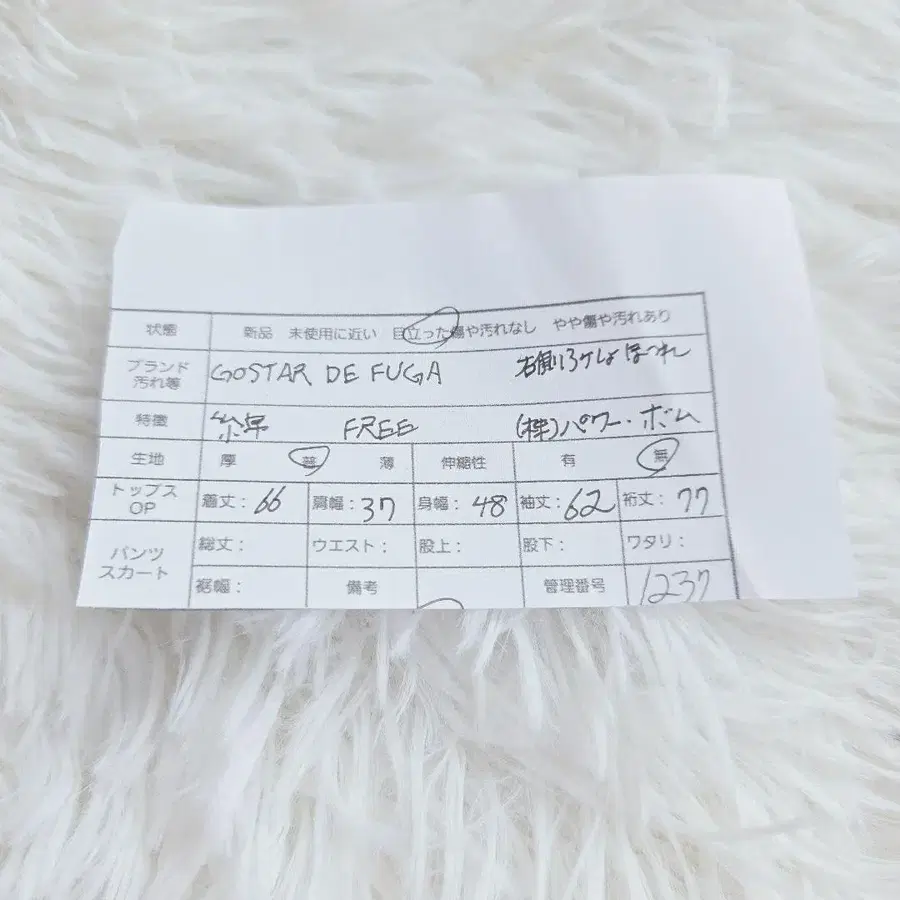 状態 新品 未使用に近い 目立った傷や汚れなし やや傷や汚れあり
ブランド GOSTAR DE FUGA 右側ろケしょほつれ
汚れ等
特徴 FREE (株)パワー・ボム
生地 厚 普 薄 伸縮性 有 無
トップス 着丈:66 肩幅:37 身幅:48 袖丈:62 裄丈:77
OP
パンツ 総丈: ウエスト: 股上: 股下: ワタリ:
スカート
裾幅: 備考 管理番号 1237